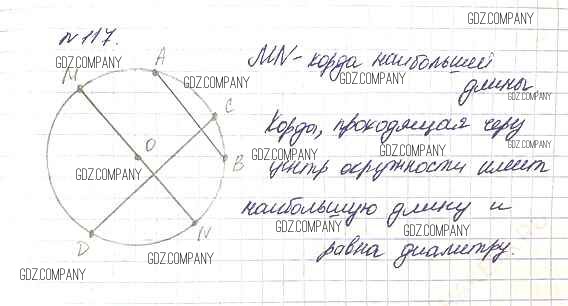 GDZ.COMPANY
№117.
GDZ.COMPANY
M A
GDZ.COMPANY
C
O
GDZ.COMPANY
B
D N
GDZ.COMPANY
GDZ.COMPANY
MN - хорда наибольшей
GDZ.COMPANY
длины
GDZ.COMPANY
Хорда, проходящая через
GDZ.COMPANY
GDZ.COMPANY GDZ.COMPANY
центр окружности имеет
наибольшую длину и
GDZ.COMPANY GDZ.COMPANY
равна диаметру.